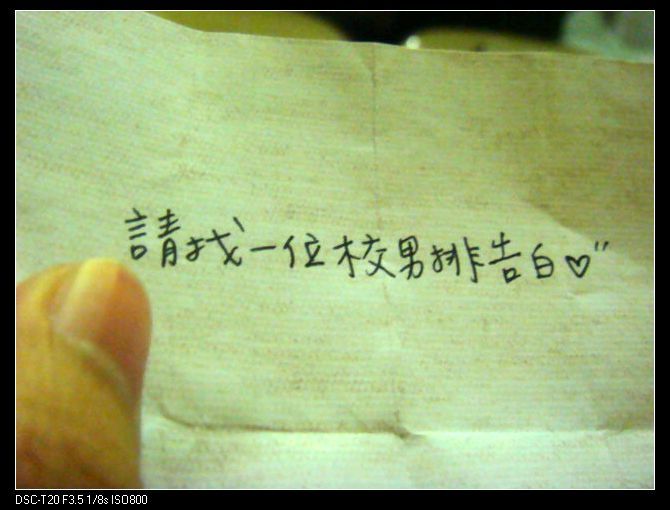 請找一位校男排告白♡"
DSC-T20 F3.5 1/8s ISO800